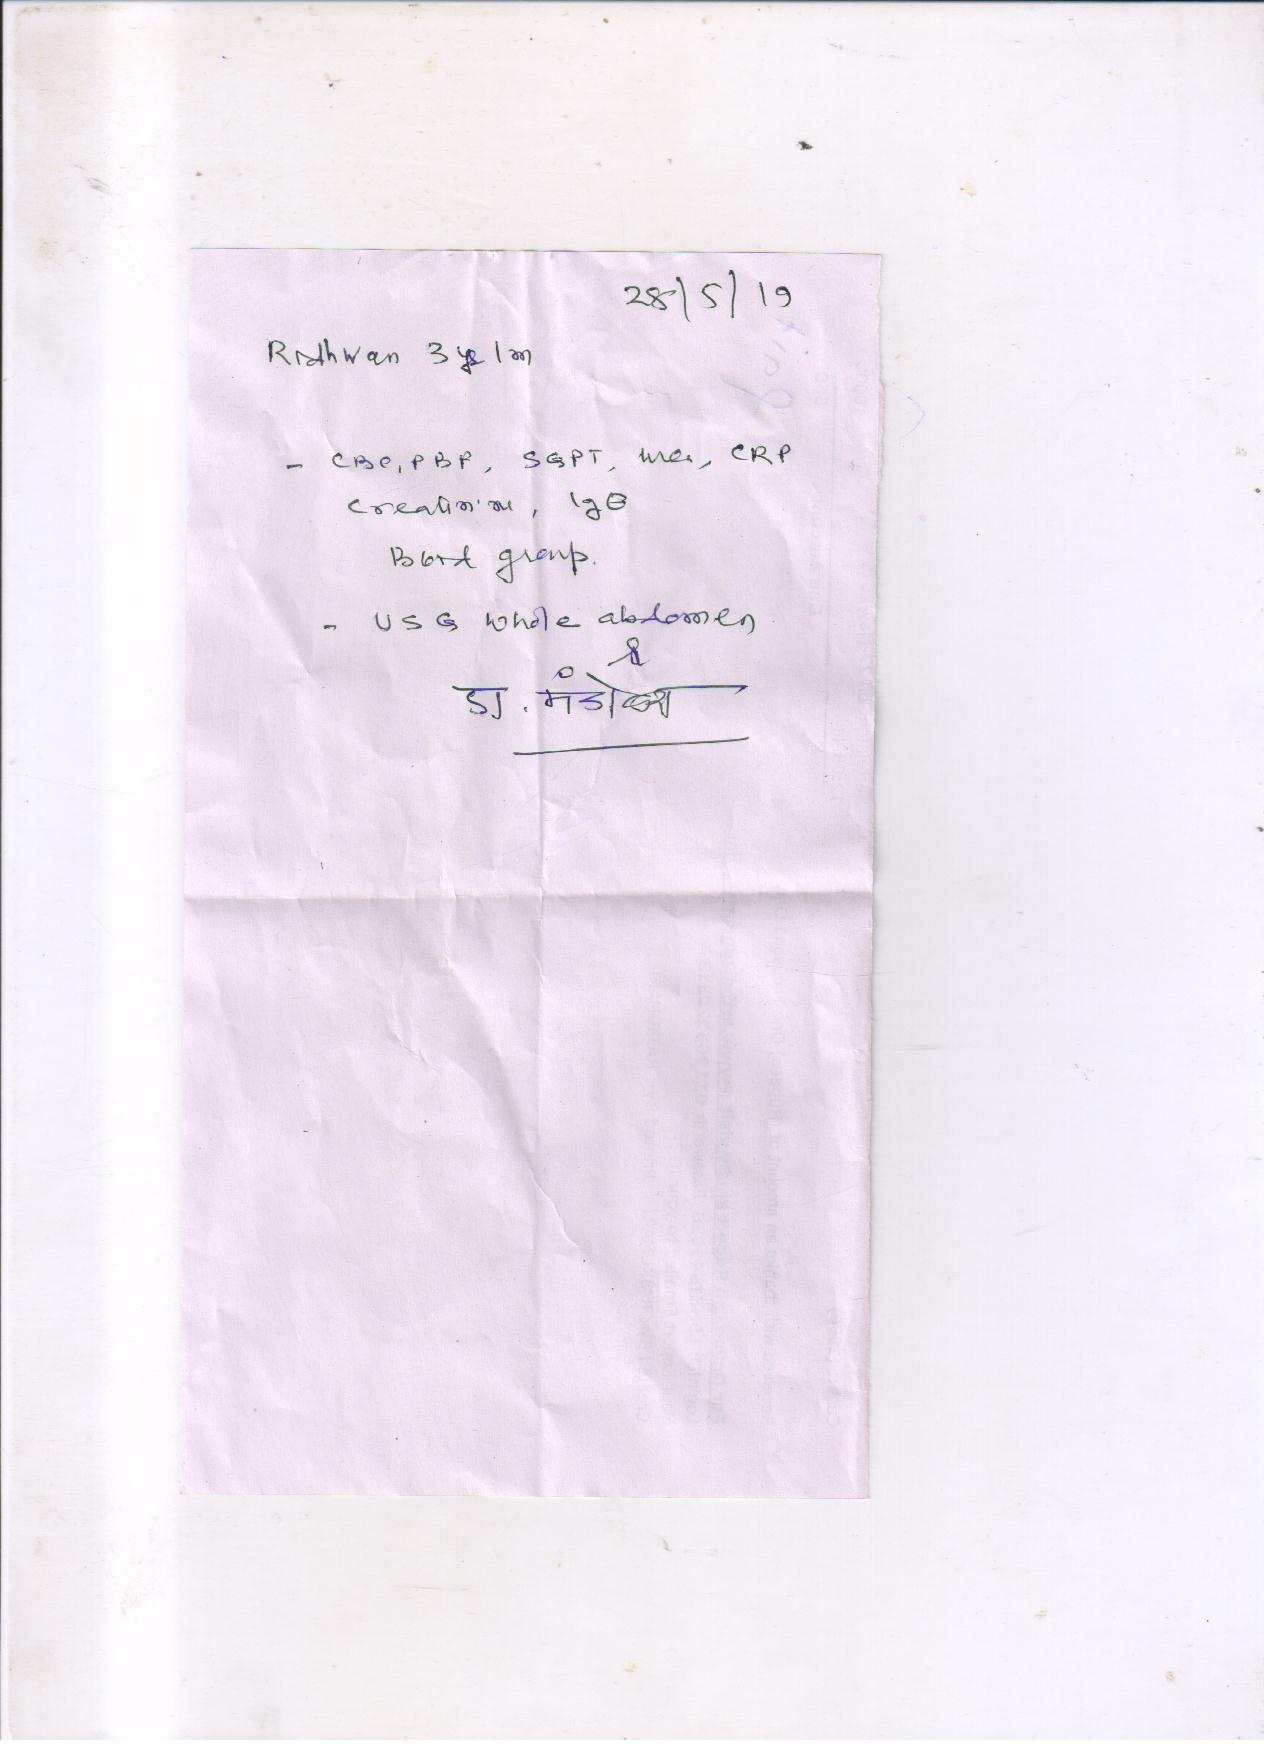 28/5/19
Ridhwan 3 ye/m
- CBC, PBF, SGPT, urea, CRP
Creatinine, IgE
Blood group.
- USG whole abdomen
डा.